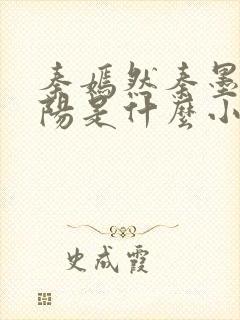 秦嫣然秦墨
陽是什麼小
史成霞